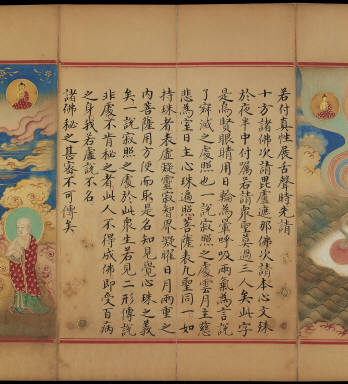 若付真性展古聲時先請
十方諸佛次請毘盧遮那佛次請本心文殊
於夜半中付囑若請衆聖莫過三人矣此字
是為賢眼睛用日輪為暈呼吸兩氣為言說
了辟滅之處照也一說寂照之處雲月主慈
悲為室日主心珠遍照菩薩表九聖同一如
持珠者表虛凝靈寂智界凝曜日月兩重之
内菩薩用方便而取是名知見覺心珠之義
矣一說寂照之處於此衆生若見二形傳説
非處不肯秘之者此人不得成佛即受百病
之身我若虛説不名
諸佛秘之甚審不可傳矣